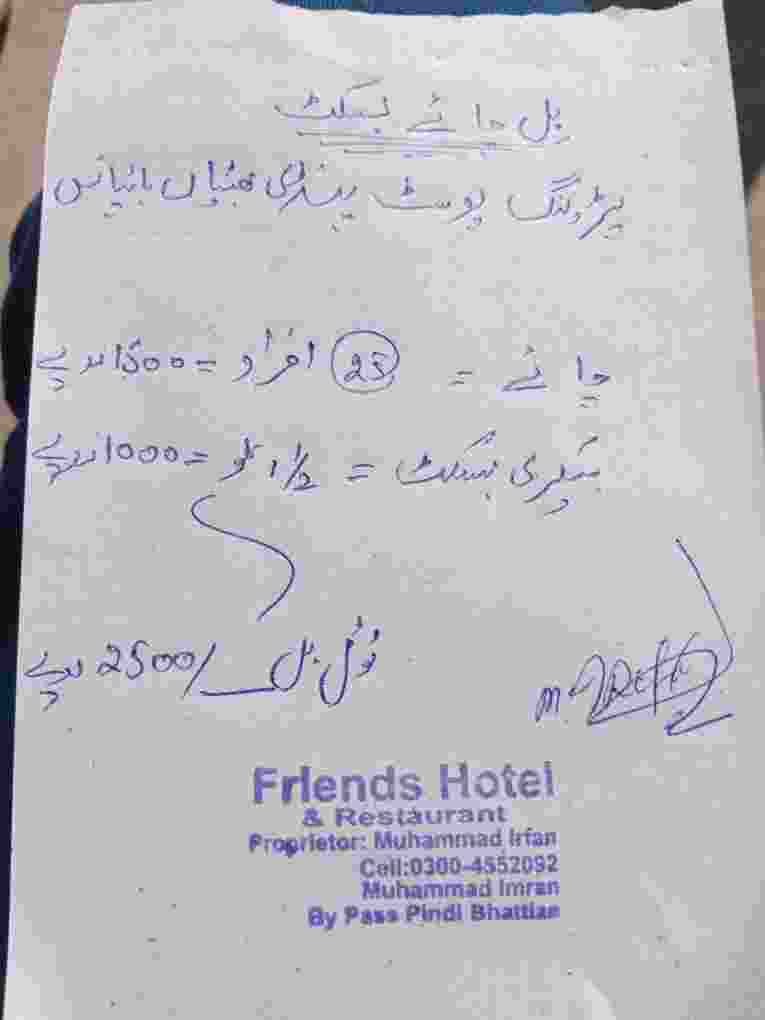 بل چائے بسکٹ
پٹرولنگ پوسٹ پنڈی بھٹیاں بائپاس
چائے = 25 افراد = 1500 روپے
بیکری بسکٹ = 1 1/2 کلو = 1000 روپے
ٹوٹل بل 2500/ روپے
Friends Hotel
& Restaurant
Proprietor: Muhammad Irfan
Cell:0300-4552092
Muhammad Imran
By Pass Pindi Bhattian